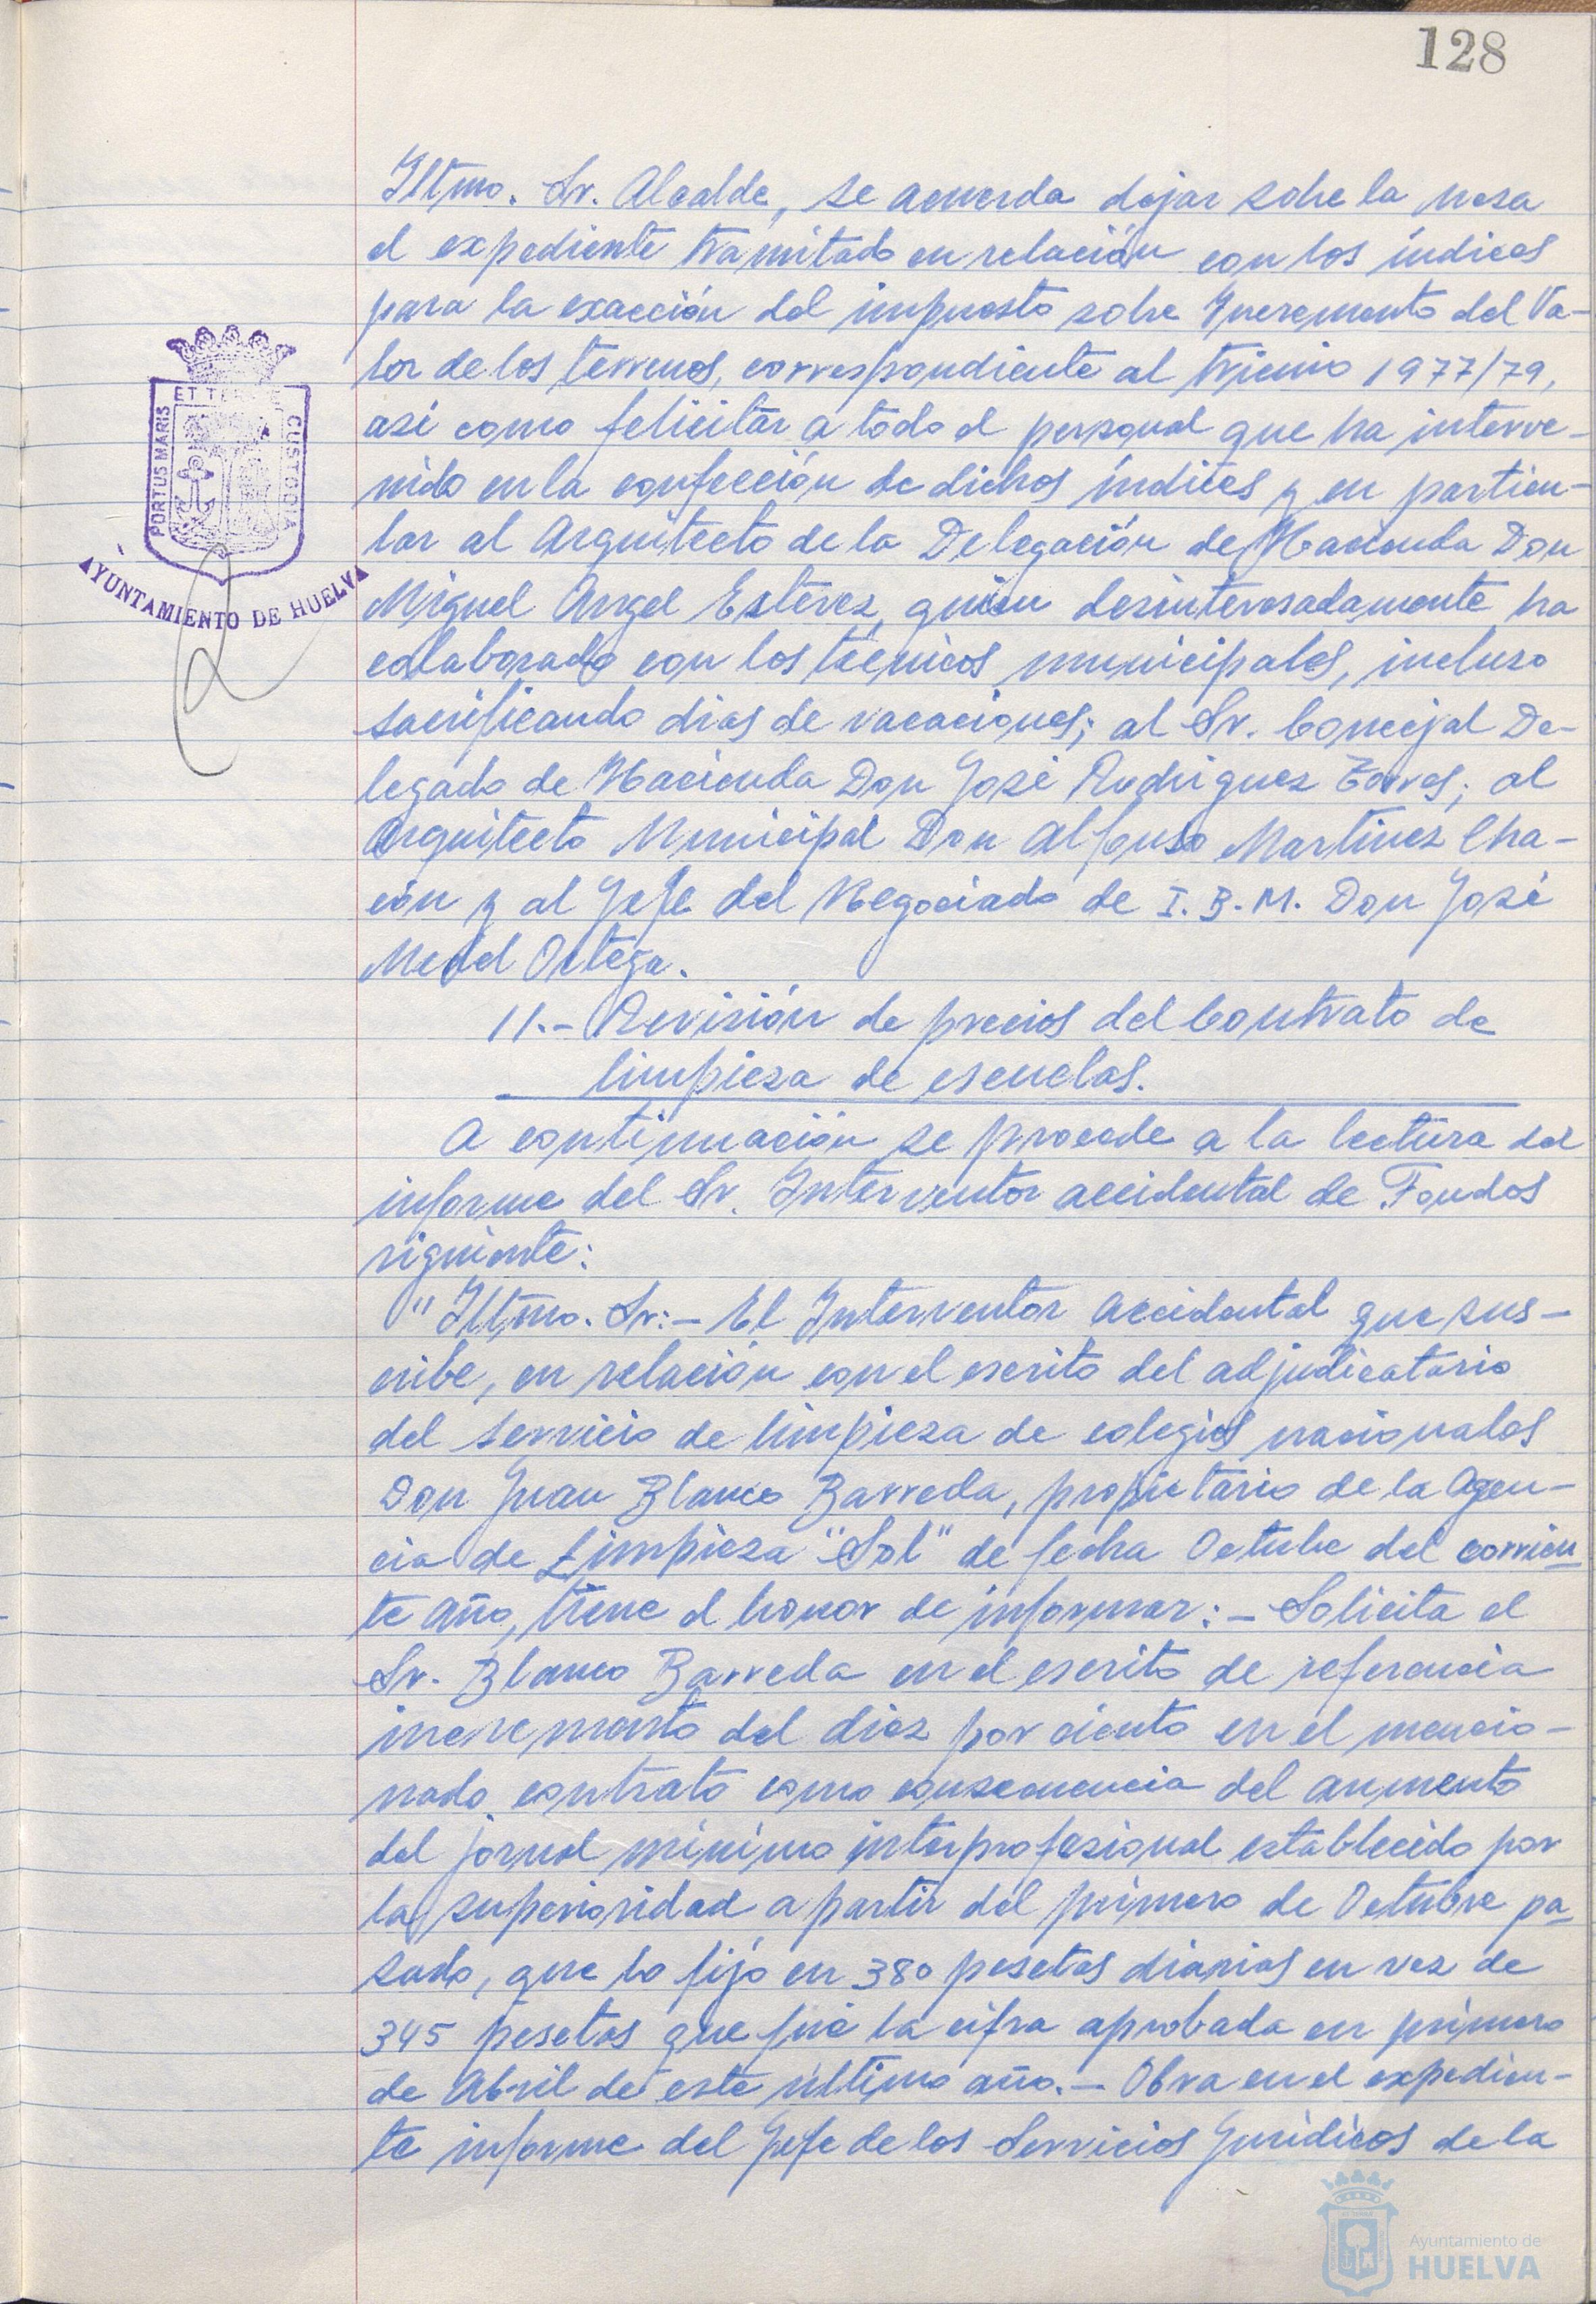 128
Iltmo. Sr. Alcalde, se acuerda dejar sobre la mesa
el expediente tramitado en relación con los índices
para la exacción del impuesto sobre Incremento del Va-
lor de los terrenos, correspondiente al trienio 1977/79,
asi como felicitar a todo el personal que ha interve-
nido en la confección de dichos índices y en particu-
lar al Arquitecto de la Delegación de Hacienda Don
Miguel Angel Estévez, quien desinteresadamente ha
colaborado con los técnicos municipales, incluso
sacrificando dias de vacaciones; al Sr. Concejal De-
legado de Hacienda Don José Rodriguez Torres; al
Arquitecto Municipal Don Alfonso Martinez Cha-
cón y al Jefe del Negociado de I.B.M. Don José
Medel Ortega.
11.- Revisión de precios del Contrato de
limpieza de escuelas.
A continuación se procede a la lectura del
informe del Sr. Interventor accidental de Fondos
siguiente:
"Iltmo. Sr:- El Interventor Accidental que sus-
cribe, en relación con el escrito del adjudicatario
del servicio de limpieza de colegios nacionales
Don Juan Blanco Barreda, propietario de la Agen-
cia de Limpieza "Sol" de fecha Octubre del corrien-
te año, tiene el honor de informar:- Solicita el
Sr. Blanco Barreda en el escrito de referencia
incremento del diez por ciento en el mencio-
nado contrato como consecuencia del aumento
del jornal mínimo interprofesional establecido por
la superioridad a partir del primero de Octubre pa-
sado, que lo fijó en 380 pesetas diarias en vez de
345 pesetas que fué la cifra aprobada en primero
de Abril de este último año.- Obra en el expedien-
te informe del Jefe de los Servicios Jurídicos de la
PORTUS MARIS
ET TERRAE
CUSTODIA
AYUNTAMIENTO DE HUELVA
Ayuntamiento de
HUELVA